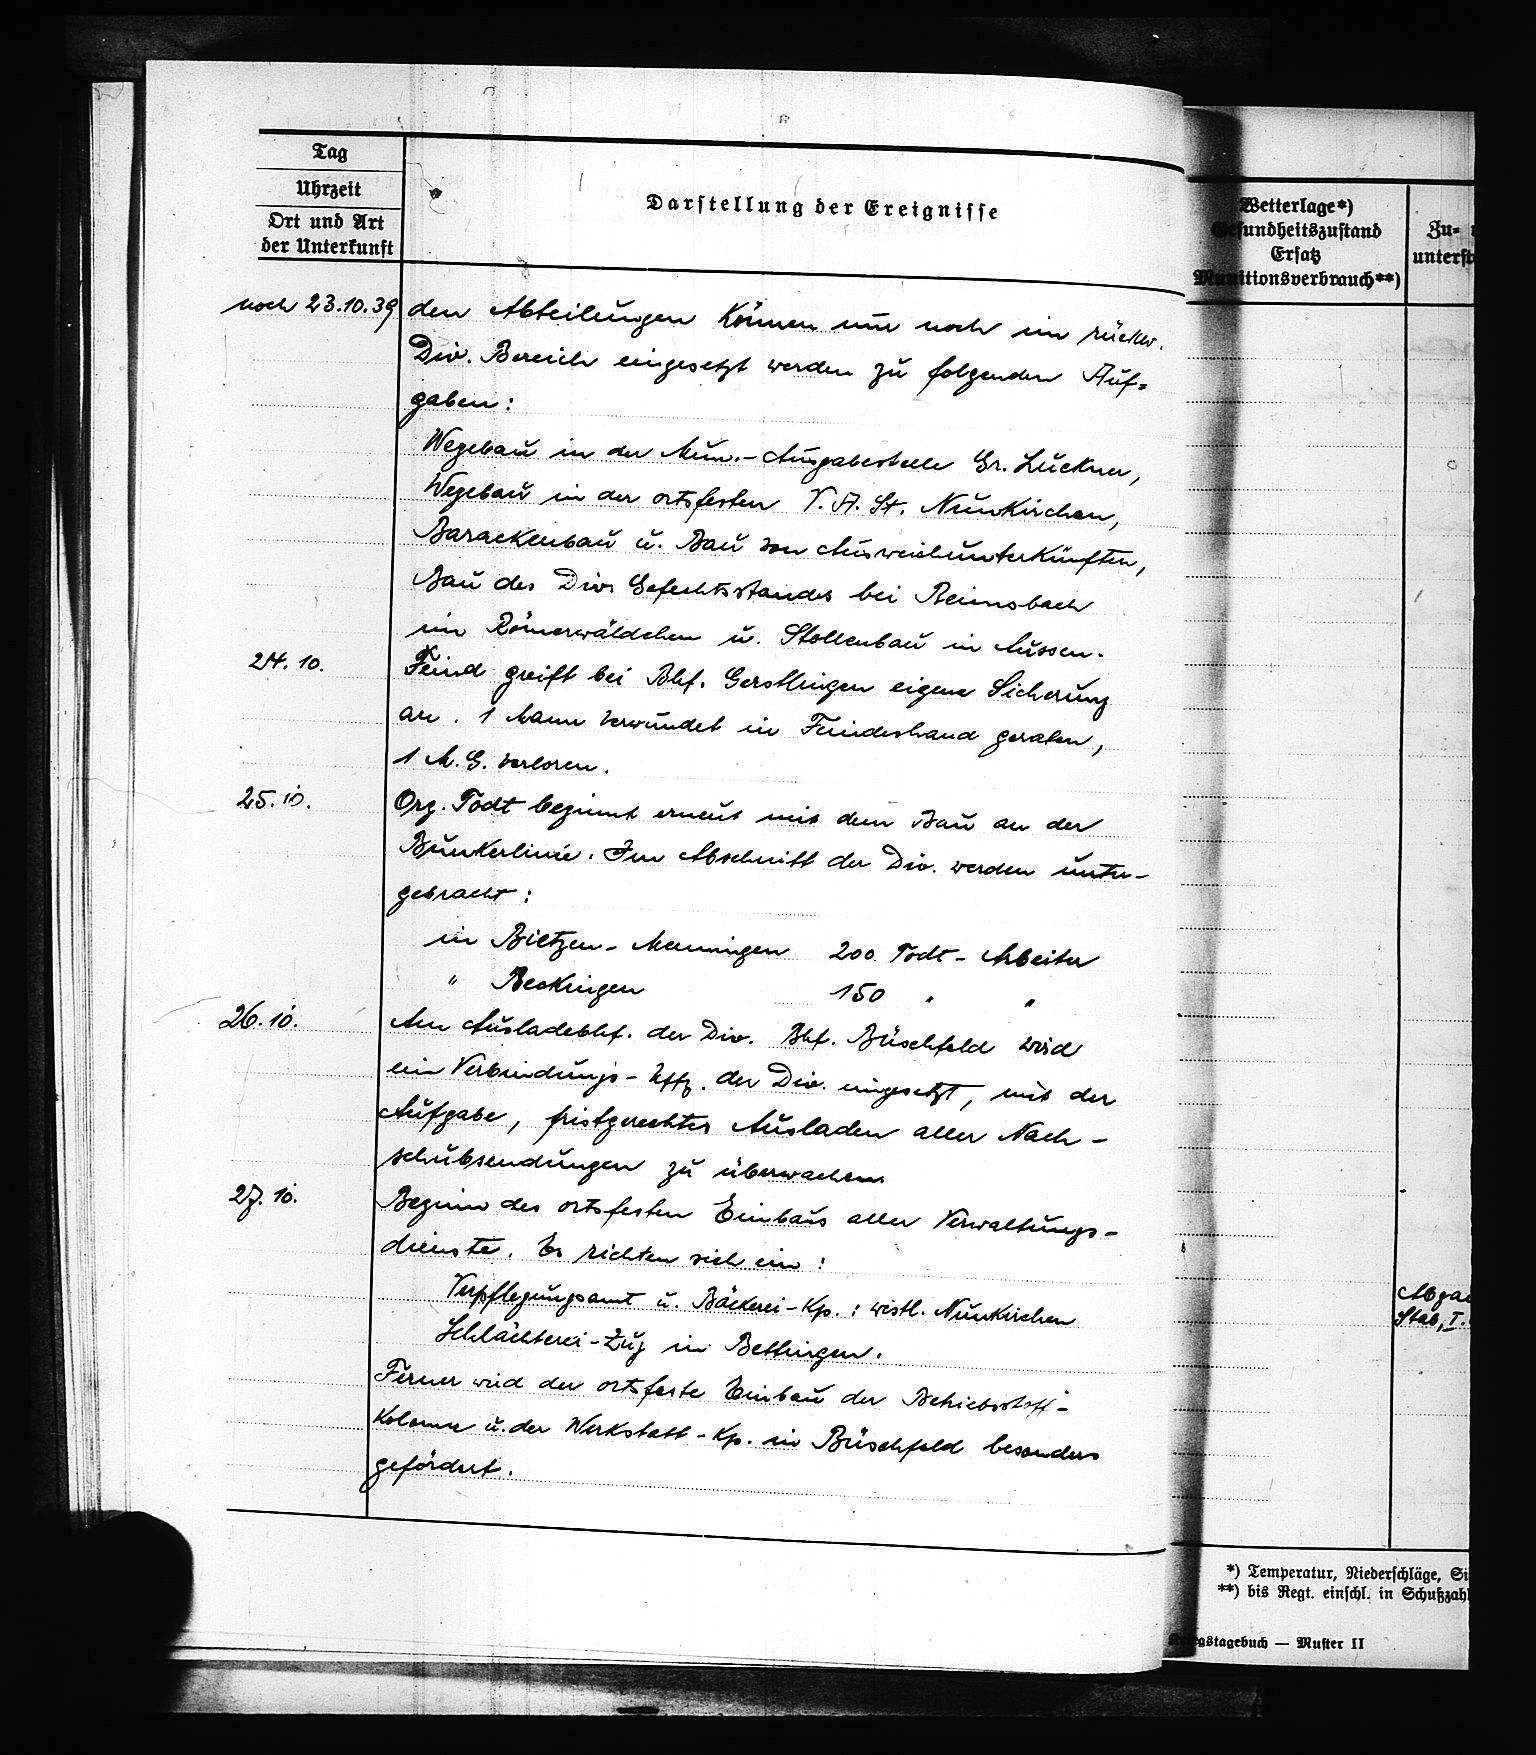 Tag
Uhrzeit
Ort und Art
der Unterkunft
Darstellung der Ereignisse
noch 23.10.39
den Abteilungen können nur noch im rückw.
Div. Bereich eingesetzt werden zu folgenden Auf=
gaben:
Wegebau in der Mun.-Ausgabestelle Gr. Luckner,
Wegebau in der ortsfesten V.A.St. Nunkirchen,
Barackenbau u. Bau von Ausweichunterkünften,
Bau des Div. Gefechtsstandes bei Reimsbach
im Römerwäldchen u. Stollenbau in Aussen.
24.10.
Feind greift bei Bhf. Gerstlingen eigene Sicherung
an. 1 Mann verwundet in Feindeshand geraten,
1 M.G. verloren.
25.10.
Org. Todt beginnt erneut mit dem Bau an der
Bunkerlinie. Im Abschnitt der Div. werden unter-
gebracht:
in Bietzen-Menningen 200 Todt-Arbeiter
" Beckingen 150 " "
26.10.
Am Ausladebhf. der Div. Bhf. Büschfeld wird
ein Verbindungs-Uffz. der Div. eingesetzt, mit der
Aufgabe, fristgerechtes Ausladen aller Nach-
schubsendungen zu überwachen.
27.10.
Beginn des ortsfesten Einbaus aller Verwaltungs-
dienste. Es richten sich ein:
Verpflegungsamt u. Bäckerei-Kp.: westl. Nunkirchen
Schlächterei-Zug in Bettingen.
Ferner wird der ortsfeste Einbau der Betriebsstoff-
Kolonne u. der Werkstatt-Kp. in Büschfeld besonders
gefördert.
Wetterlage*)
Gesundheitszustand
Ersatz
Munitionsverbrauch**)
Zu=
unterst
Stab, I.
*) Temperatur, Niederschläge, Si
**) bis Regt. einschl. in Schußzahl
Kriegstagebuch — Muster II